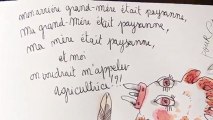 mon arrière grand-mère était paysanne,
Ma grand-Mère était paysanne,
Ma mère était paysanne,
et moi
on voudrait m'appeler
agricultrice !?!